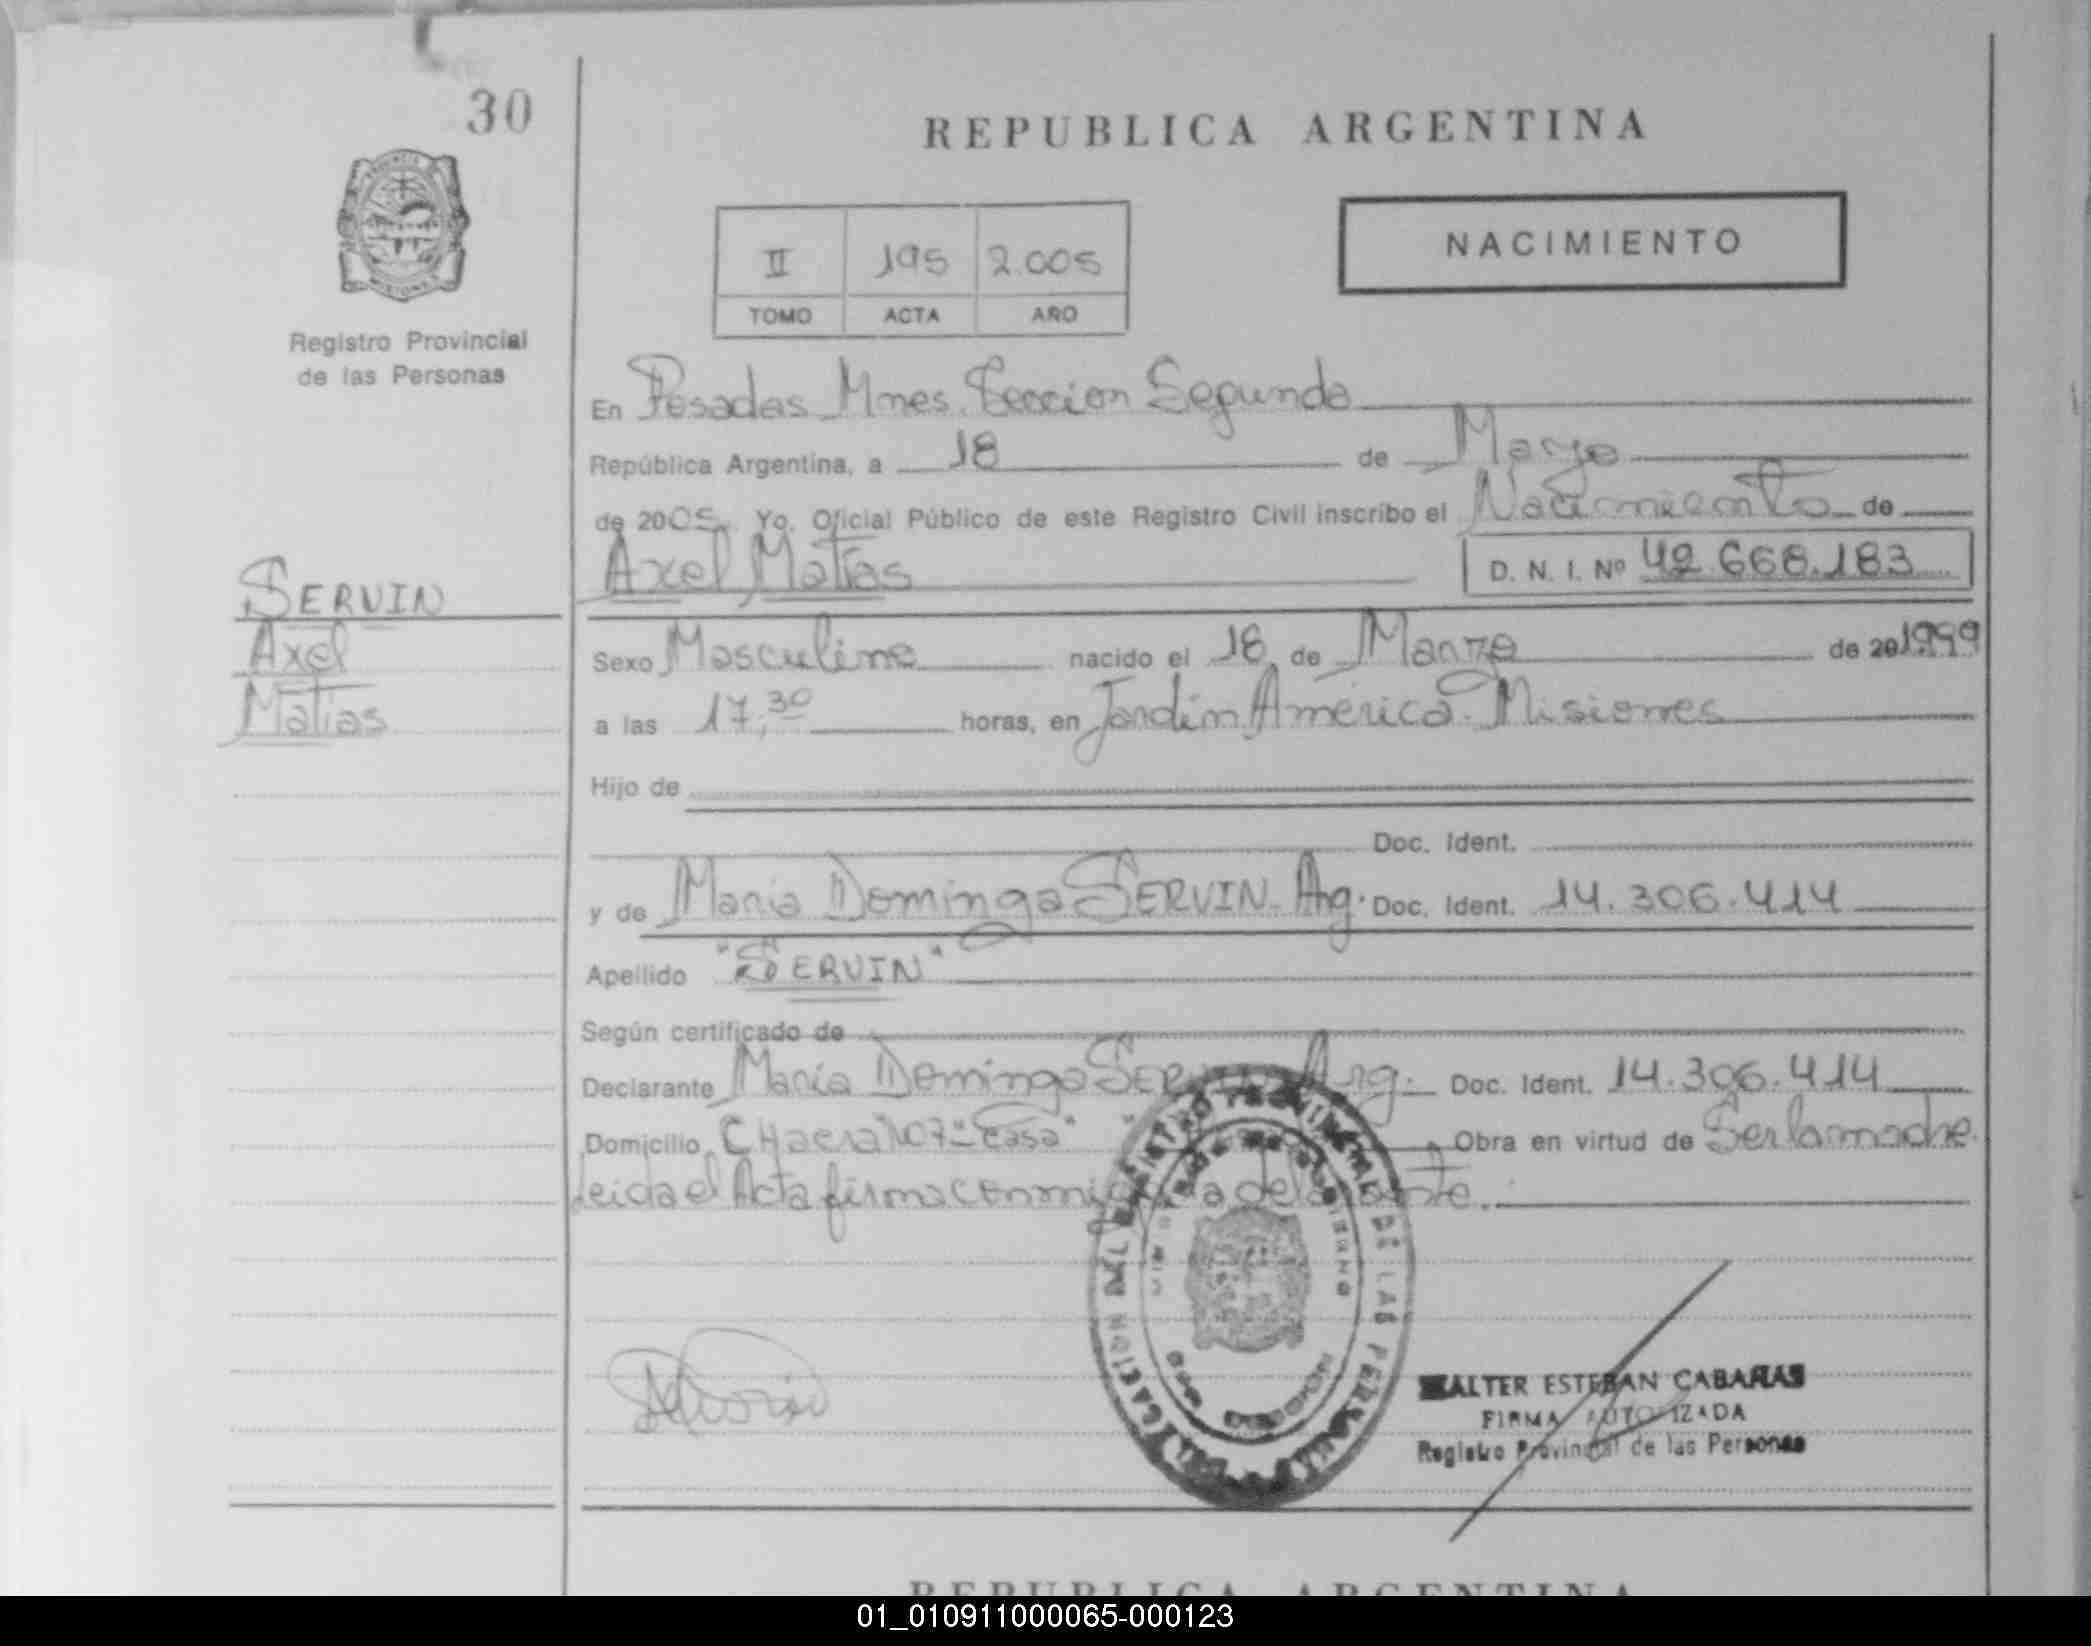 30
REPUBLICA ARGENTINA
NACIMIENTO
II 195 2.005
TOMO ACTA AÑO
Registro Provincial
de las Personas
En Posadas Mnes. Seccion Segunda
República Argentina, a 18 de Mayo
de 2005. Yo, Oficial Público de este Registro Civil inscribo el Nacimiento de
Axel Matías D. N. I. Nº 42.668.183
SERVIN
Axel
Matías
Sexo Masculino nacido el 18 de Marzo de 20 1999
a las 17,30 horas, en Jardín América. Misiones
Hijo de
Doc. Ident.
y de María Dominga SERVIN. Arg. Doc. Ident. 14.306.414
Apellido "SERVIN"
Según certificado de
Declarante María Dominga SERVIN Arg. Doc. Ident. 14.306.414
Domicilio CHacra 107 "Casa" Obra en virtud de Ser la madre.
Leida el Acta firma conmigo la declarante.
WALTER ESTEBAN CABAÑAS
FIRMA AUTORIZADA
Registro Provincial de las Personas
REPUBLICA ARGENTINA
01_010911000065-000123